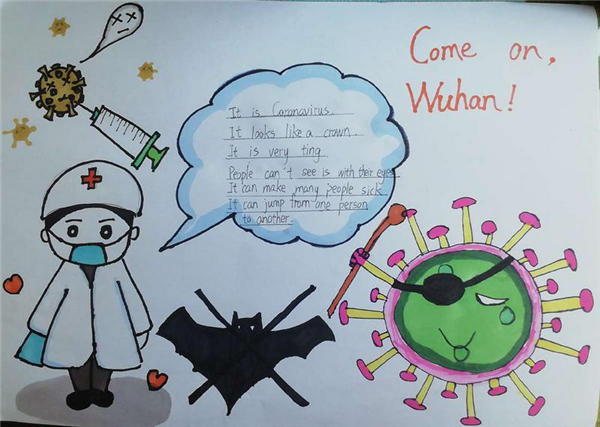 Come on,
Wuhan!
It is Coronavirus.
It looks like a crown.
It is very ting
People can't see is with their eyes
It can make many people sick
It can jump from one person
to another.